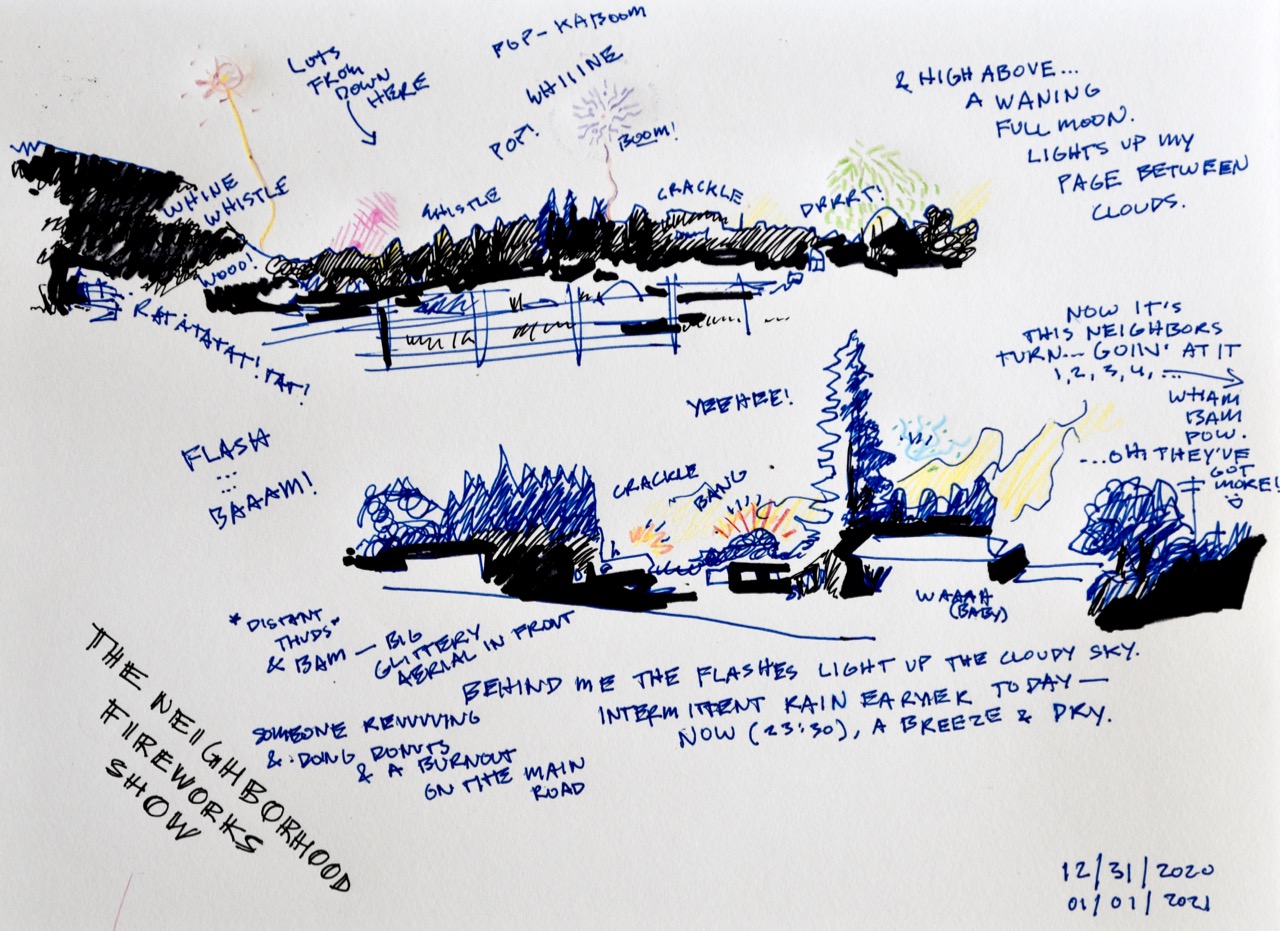 POP-KABOOM
LOTS
FROM
DOWN
HERE
WHIIINE
POP!
BOOM!
& HIGH ABOVE...
A WANING
FULL MOON.
LIGHTS UP MY
PAGE BETWEEN
CLOUDS.
WHINE
WHISTLE
WHISTLE
CRACKLE
DRRRT!
WOOO!
RATATATAT! TAT!
NOW IT'S
THIS NEIGHBORS
TURN... GOIN' AT IT
1, 2, 3, 4, ...
WHAM
BAM
POW.
...OH! THEY'VE
GOT
MORE!
YEEHEE!
FLASH
...
BAAAM!
CRACKLE
BANG
WAAAH
(BABY)
*DISTANT
THUDS*
& BAM — BIG
GLITTERY
AERIAL IN FRONT
BEHIND ME THE FLASHES LIGHT UP THE CLOUDY SKY.
INTERMITTENT RAIN EARLIER TODAY—
NOW (23:30), A BREEZE & DRY.
SOMEONE REVVVVING
& DOING DONUTS
& A BURNOUT
ON THE MAIN
ROAD
THE NEIGHBORHOOD
FIREWORKS
SHOW
12/31/2020
01/01/2021